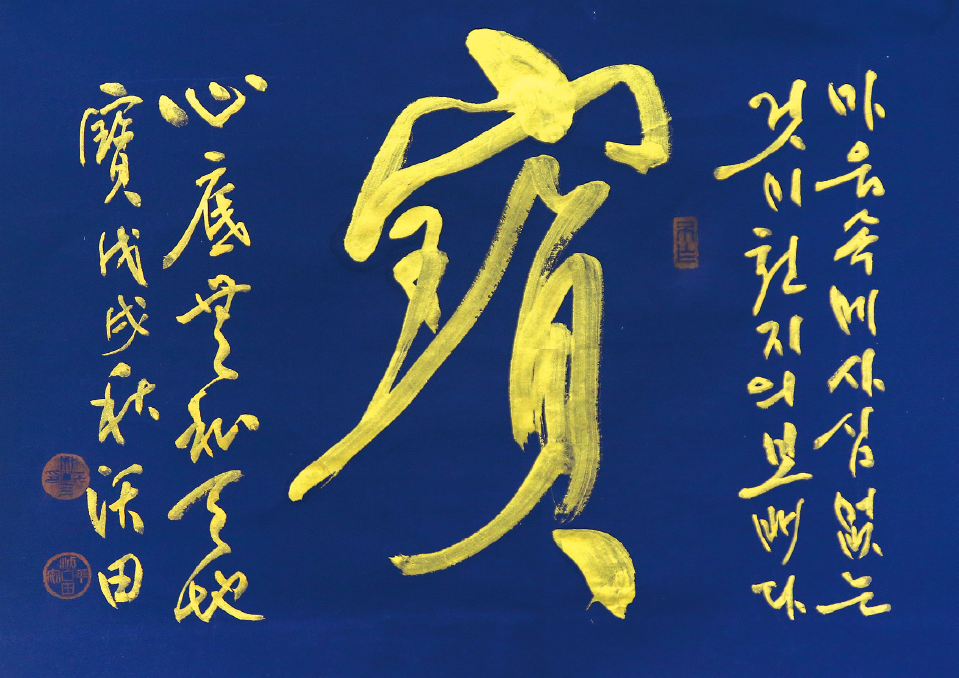 마음속에사심없는
것이천지의보배다
寶
心底無私天地
寶戊戌秋沃田